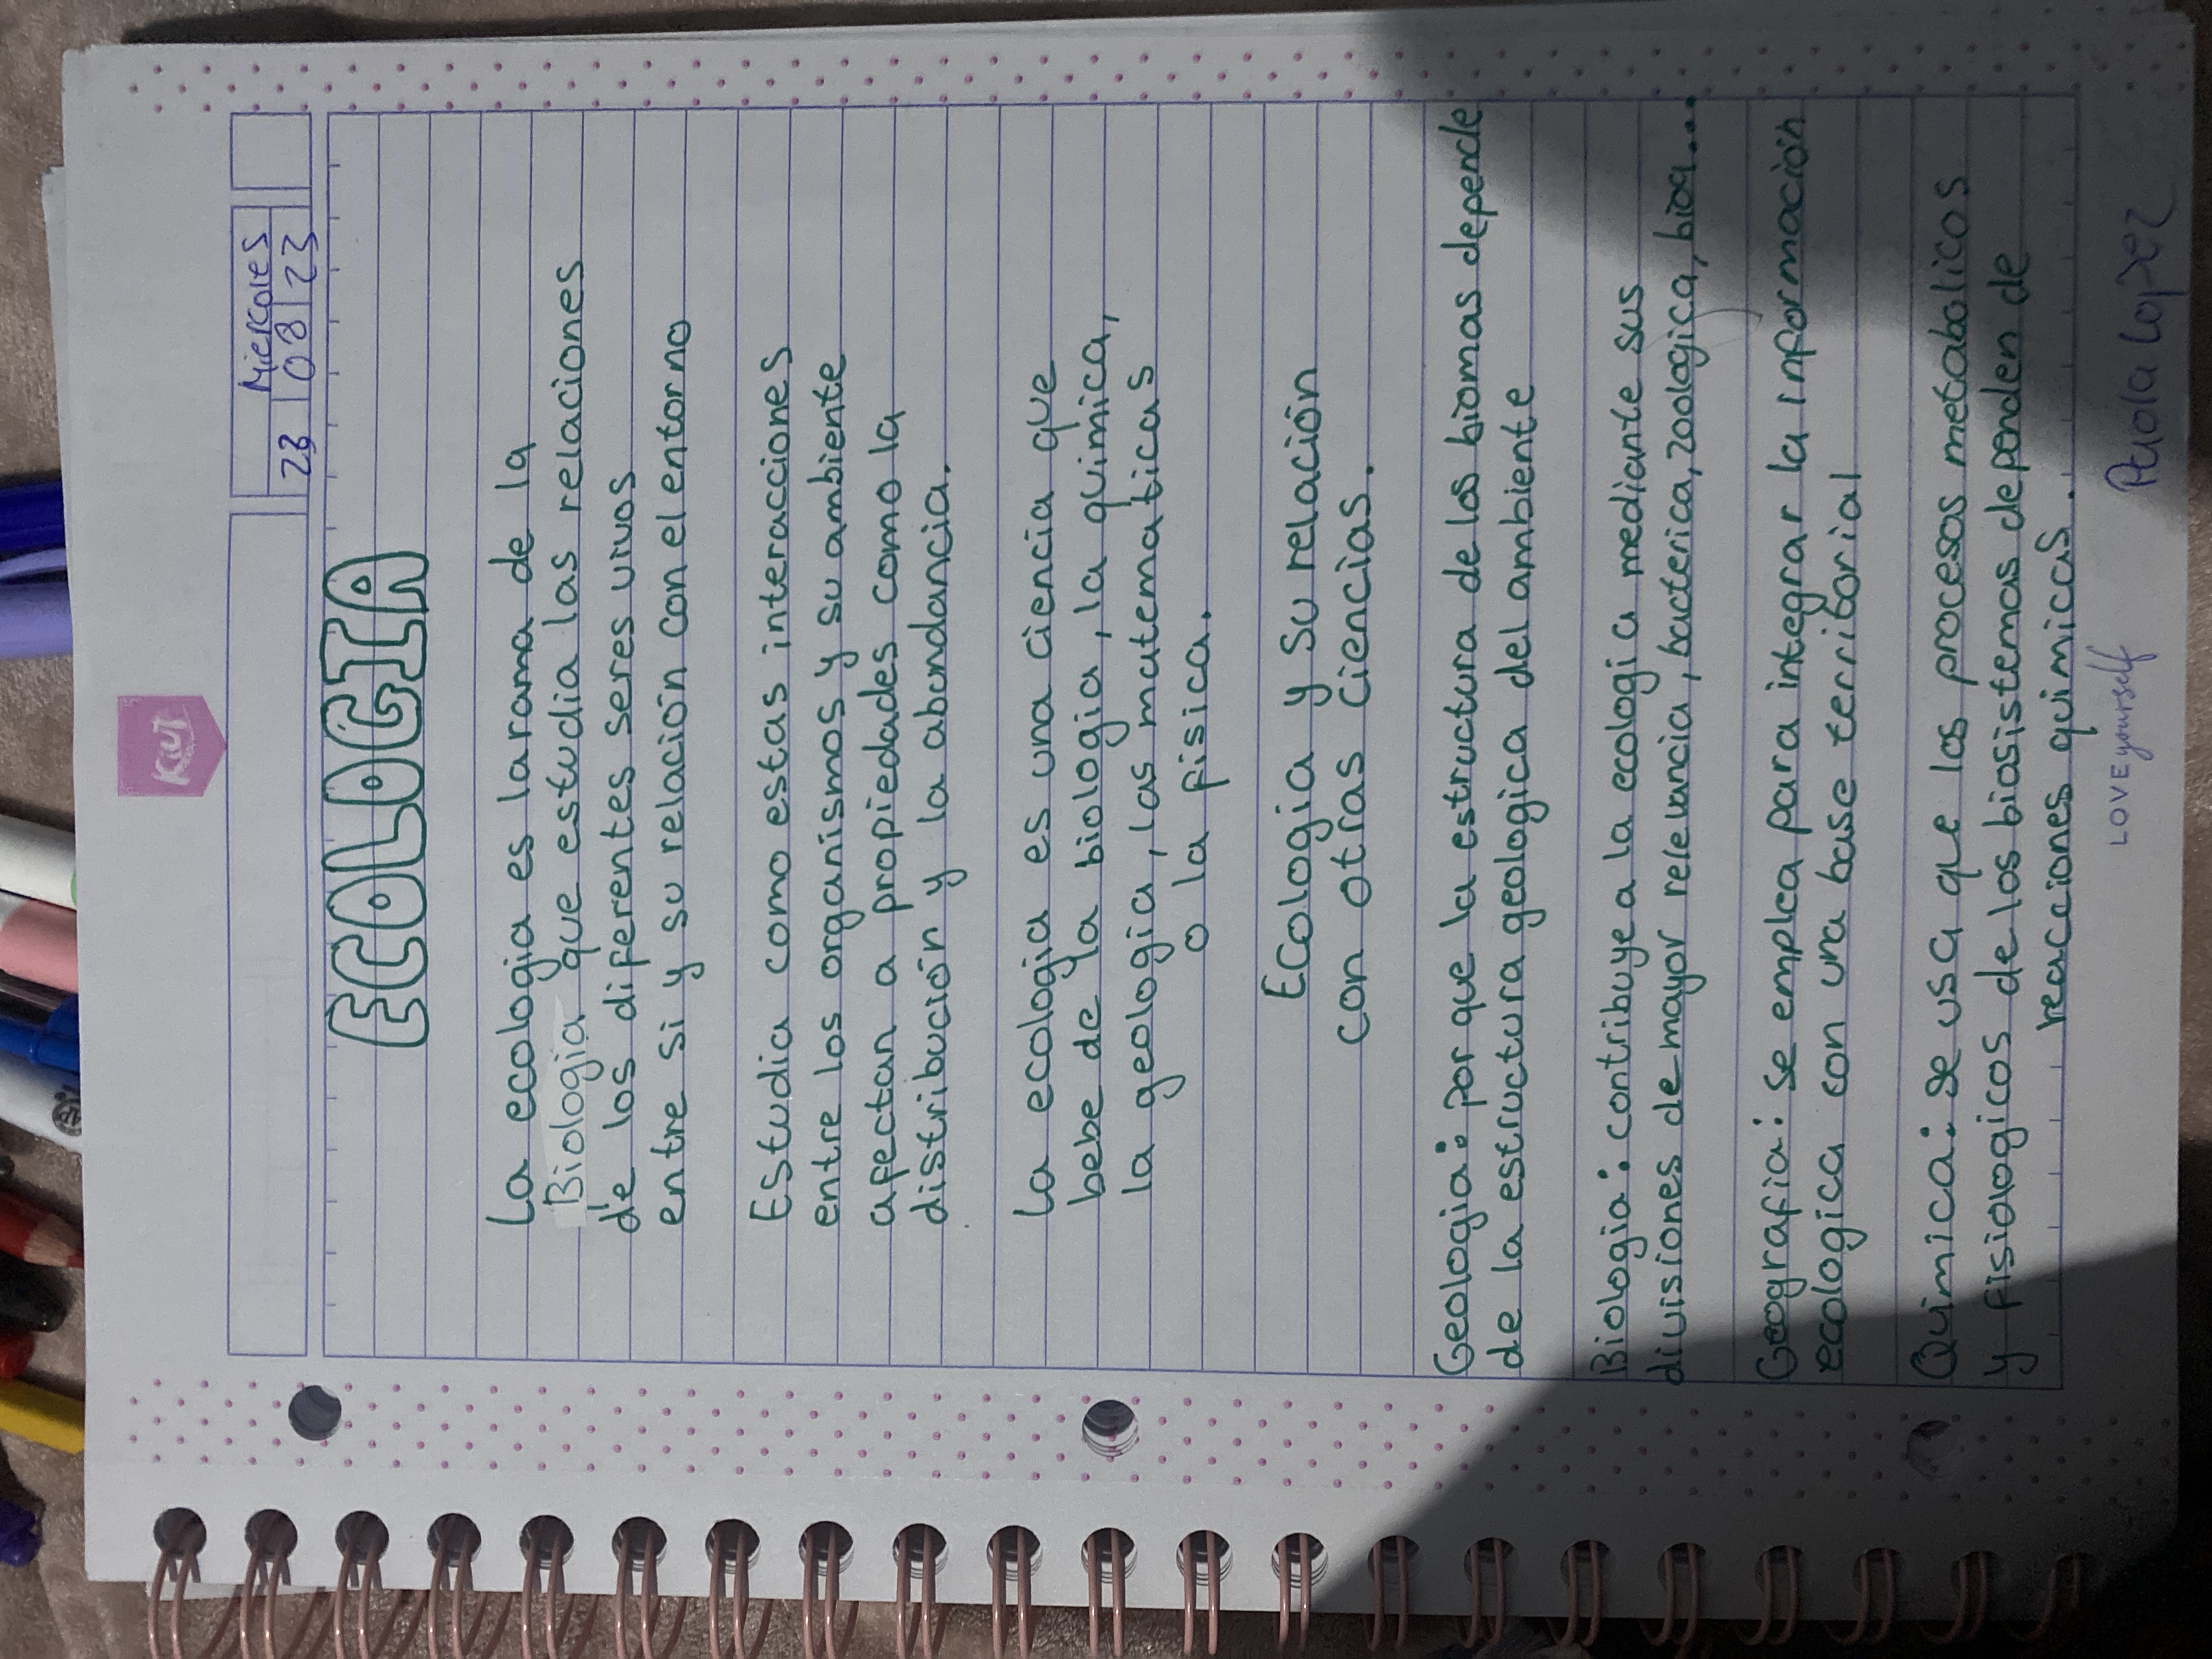 KUT
Miercoles
23 08 23
ECOLOGIA
La ecologia es la rama de la
Biologia que estudia las relaciones
de los diferentes seres vivos
entre si y su relación con el entorno
Estudia como estas interacciones
entre los organismos y su ambiente
afectan a propiedades como la
distribución y la abundancia.
La ecologia es una ciencia que
bebe de la biologia, la quimica,
la geologia, las matematicas
o la fisica.
Ecologia y su relación
con otras ciencias.
Geologia: por que la estructura de los biomas depende
de la estructura geologica del ambiente
Biologia: contribuye a la ecologia mediante sus
divisiones de mayor relevancia, bacterica, zoologica, bioq...
Geografia: se emplea para integrar la información
ecologica con una base territorial
Quimica: se usa que los procesos metabolicos
y fisiologicos de los biosistemas dependen de
reacciones quimicas.
LOVE yourself
Paola Lopez